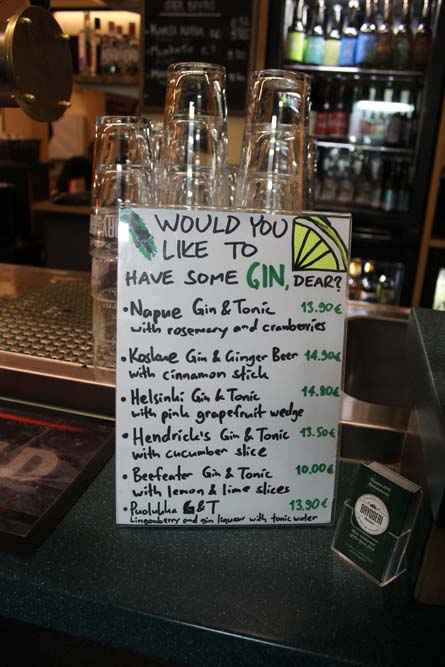 WOULD YOU
LIKE TO
HAVE SOME GIN, DEAR?
• Napue Gin & Tonic 13.90€
with rosemary and cranberries
• Koskue Gin & Ginger Beer 14.90€
with cinnamon stick
• Helsinki Gin & Tonic 14.80€
with pink grapefruit wedge
• Hendrick's Gin & Tonic 13.50€
with cucumber slice
• Beefeater Gin & Tonic 10.00€
with lemon & lime slices
• Puolukka G&T 13.90€
Lingonberry and gin liqueur with tonic water
BRYGGERI